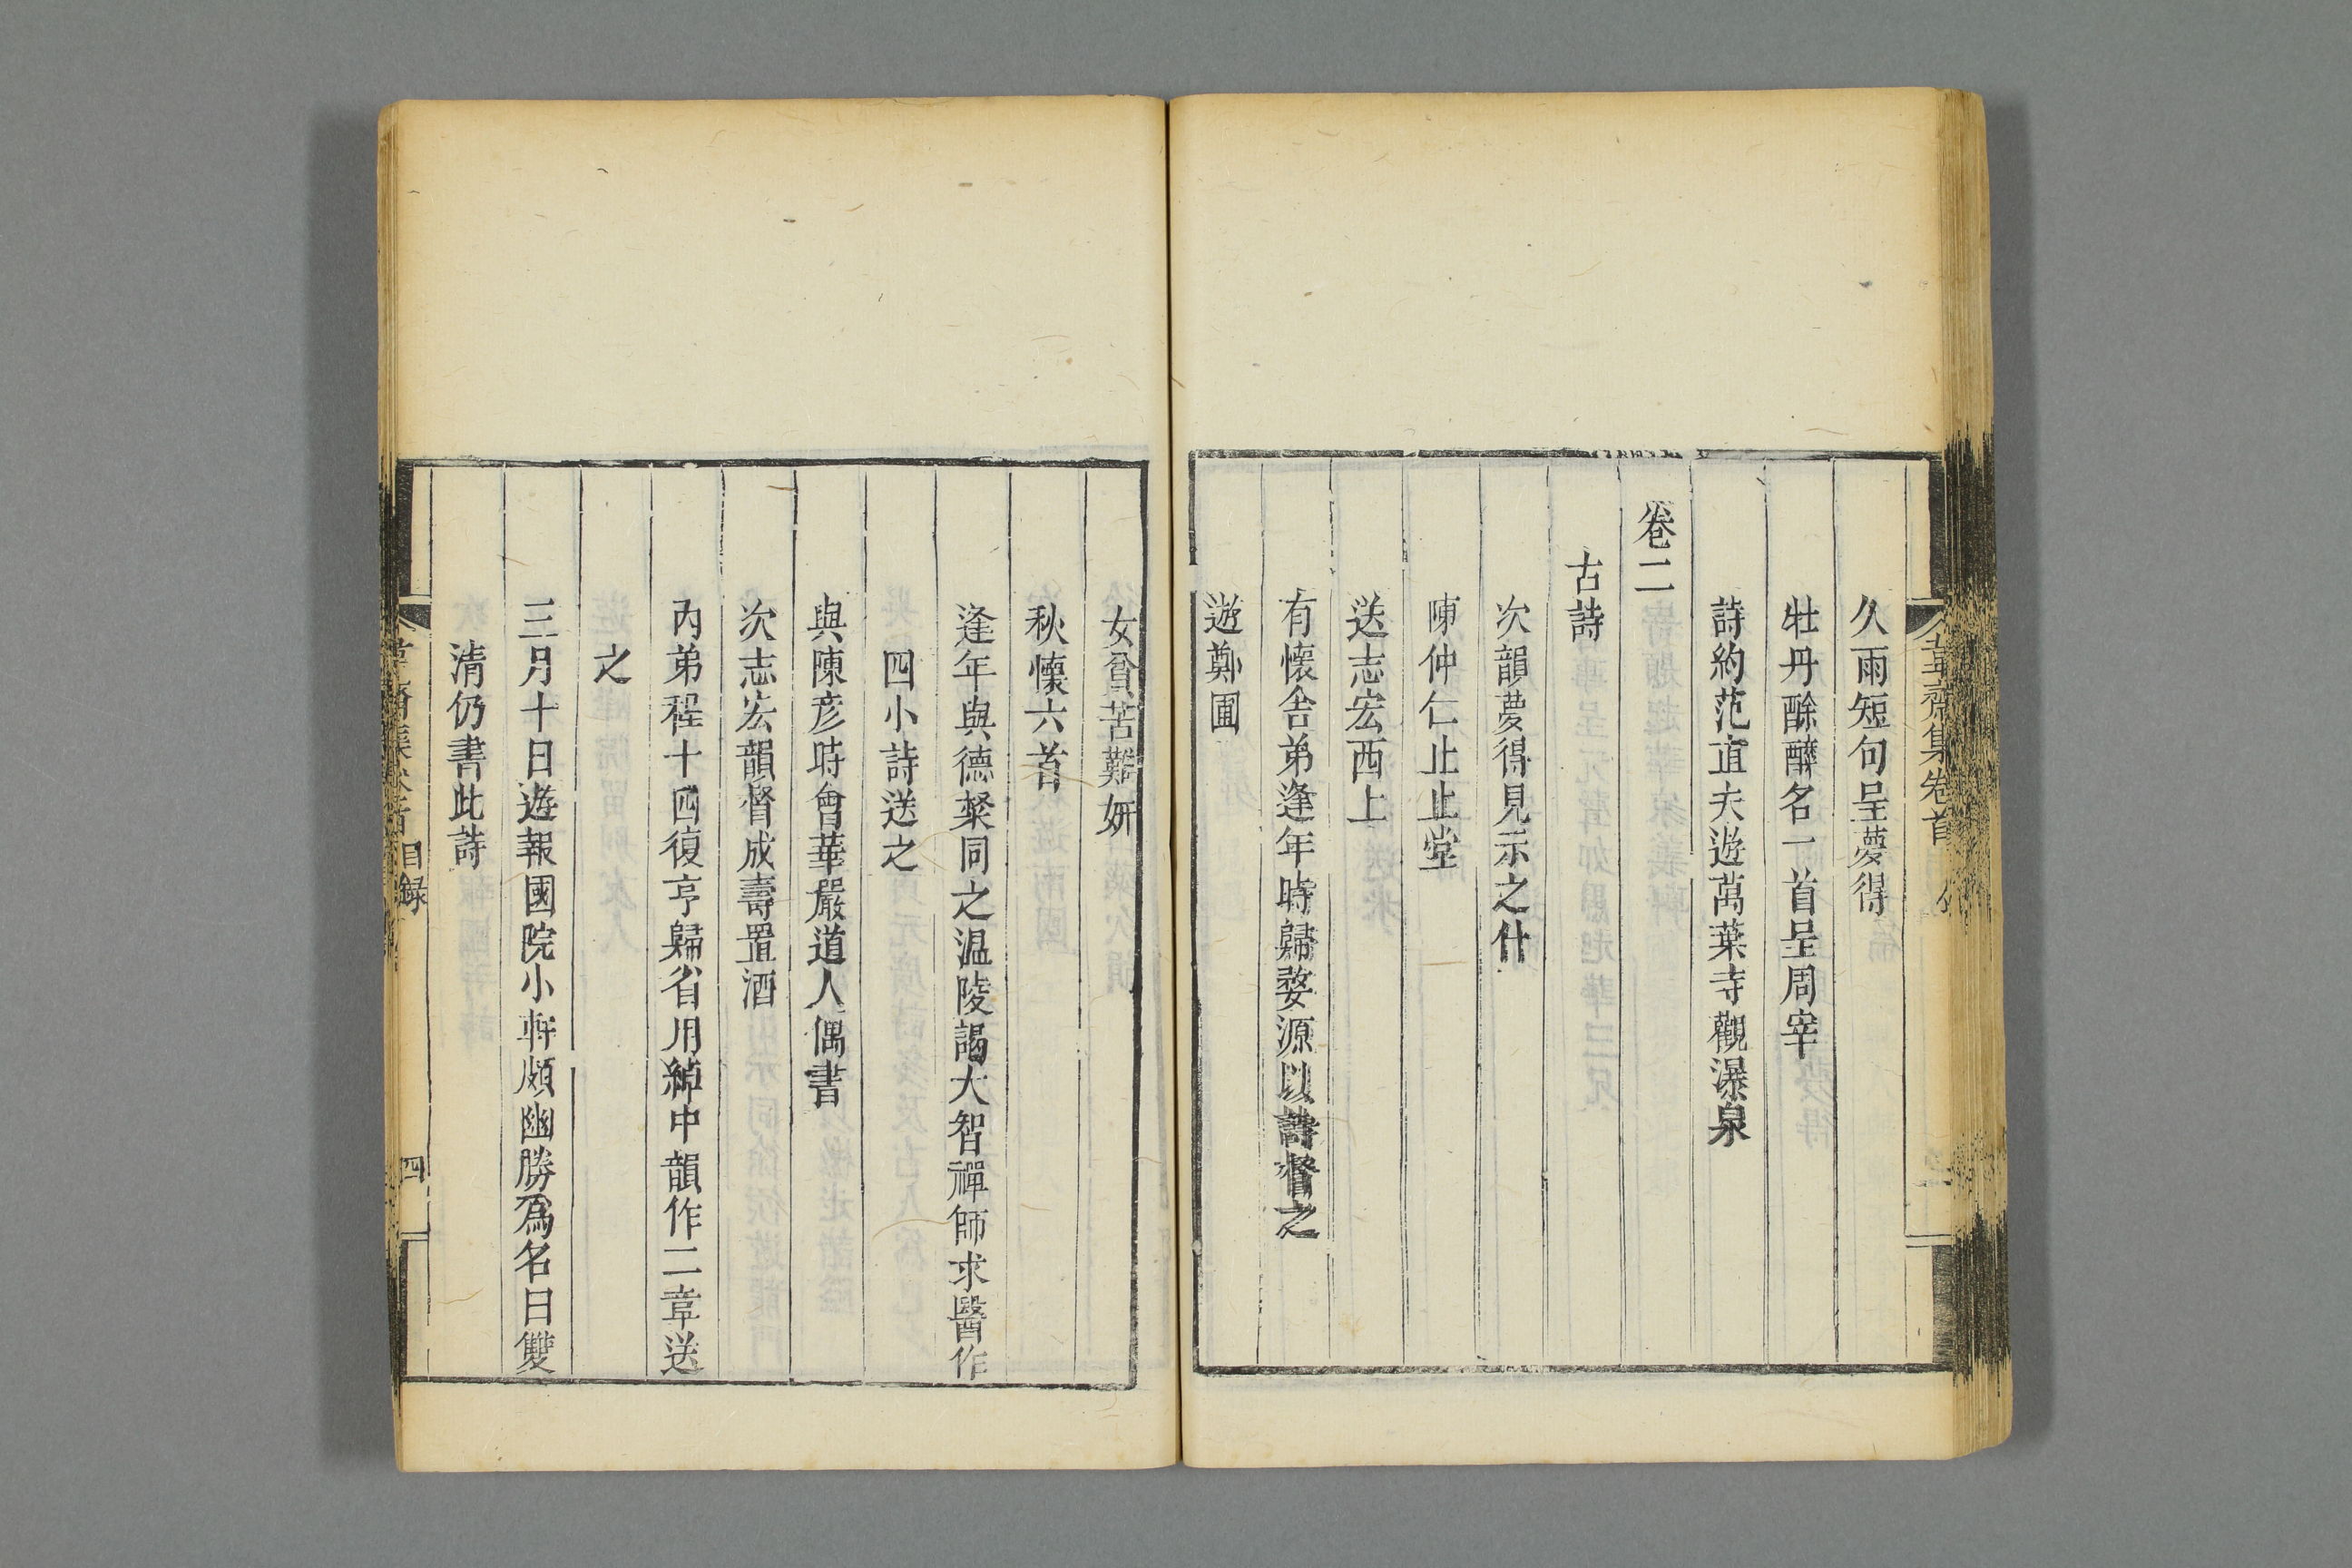 韋齋集卷首
久雨短句呈夢得
牡丹酴醾名一首呈周宰
詩約范直夫遊萬葉寺觀瀑泉
卷二
古詩
次韻夢得見示之什
陳仲仁止止堂
送志宏西上
有懷舍弟逢年時歸婺源以詩督之
遊鄭圃
女貧苦難妍
秋懷六首
逢年與德粲同之温陵謁大智禪師求醫作
四小詩送之
與陳彦時會華嚴道人偶書
次志宏韻督成壽置酒
内弟程十四復亨歸省用綽中韻作二章送
之
三月十日遊報國院小軒頗幽勝爲名曰雙
清仍書此詩
目録
四